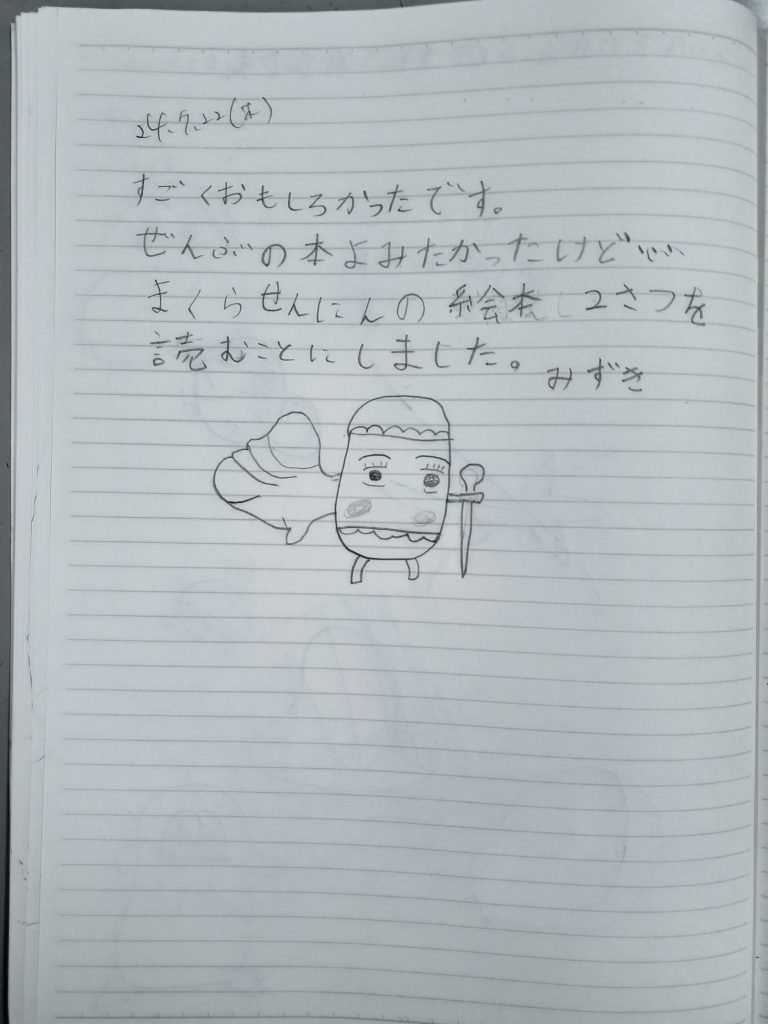 すごくおもしろかったです。
ぜんぶの本よみたかったけど…
まくらせんにんの絵本2さつを
読むことにしました。
みずき